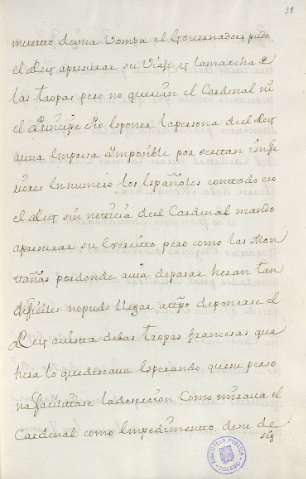 39
muerto de una bomba el Governador pudo
el Rey apresurar su Viaje y la marcha de
las tropas pero no querian el Cardenal ni
el Principe esponer la persona del Rey
a una Empresa imposible por ser tan infe
riores en numero los Españoles con todo eso
el Rey sin noticia del Cardenal mando
apresurar su Exercito pero como las Mon
tañas por donde avia de pasar heran tan
dificiles no pudo llegar a tiempo de ponerse el
Rey a vista de las tropas francesas que
hera lo que deseava Esperando, que su perso
na facilitase la desercion Como mirava el
Cardenal como Impedimento, de su de
sig